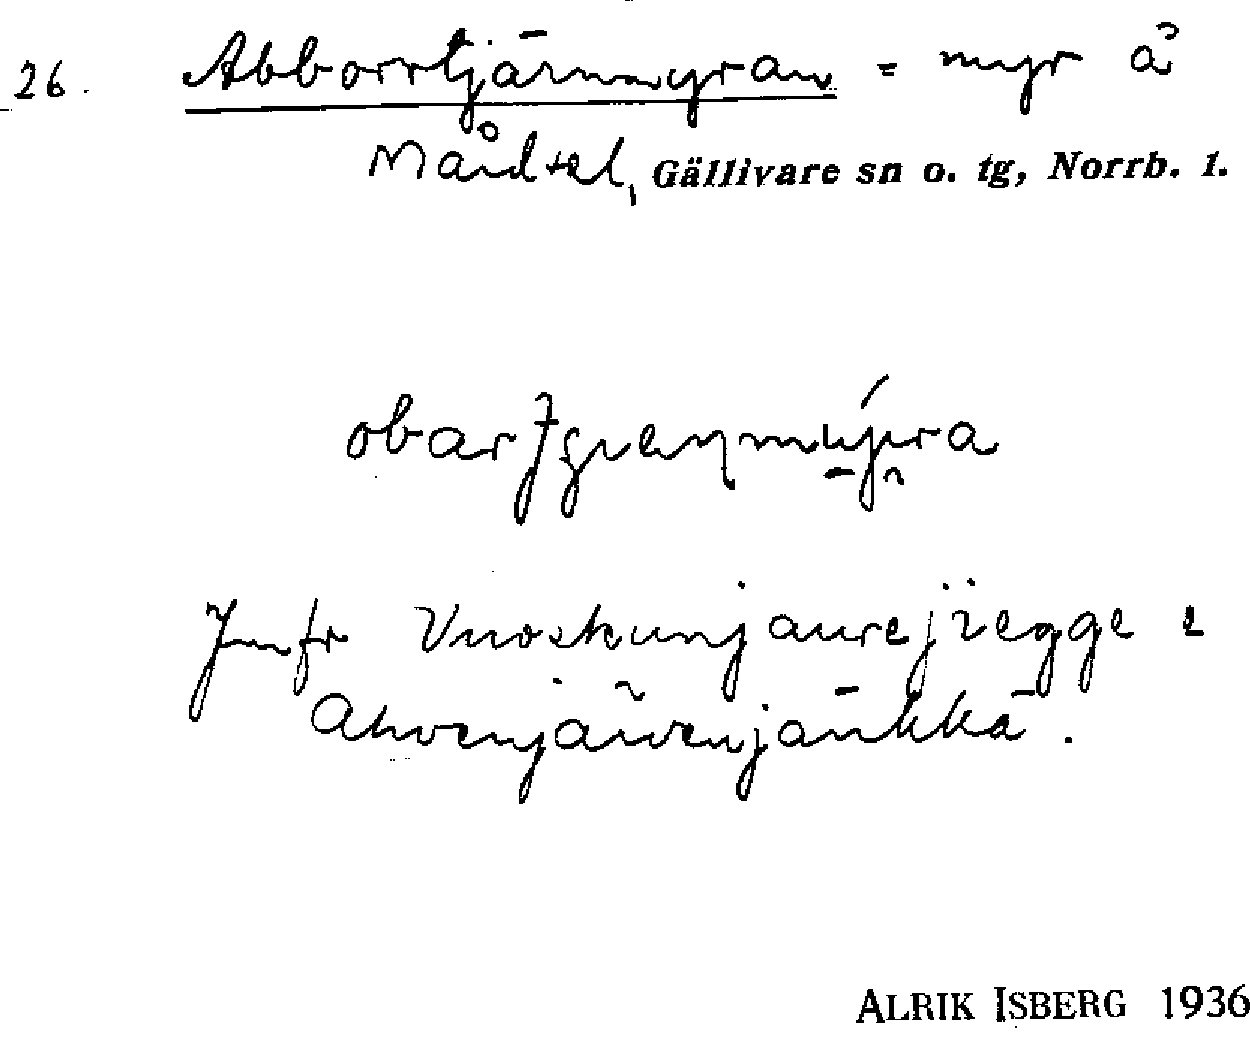 26. Abborrtjärnmyran = myr å
Mårdsel, Gällivare sn o. tg, Norrb. l.
Jmfr Vuoskunjaurejiegge o
Ahvenjärvenjänkkä.
ALRIK ISBERG 1936